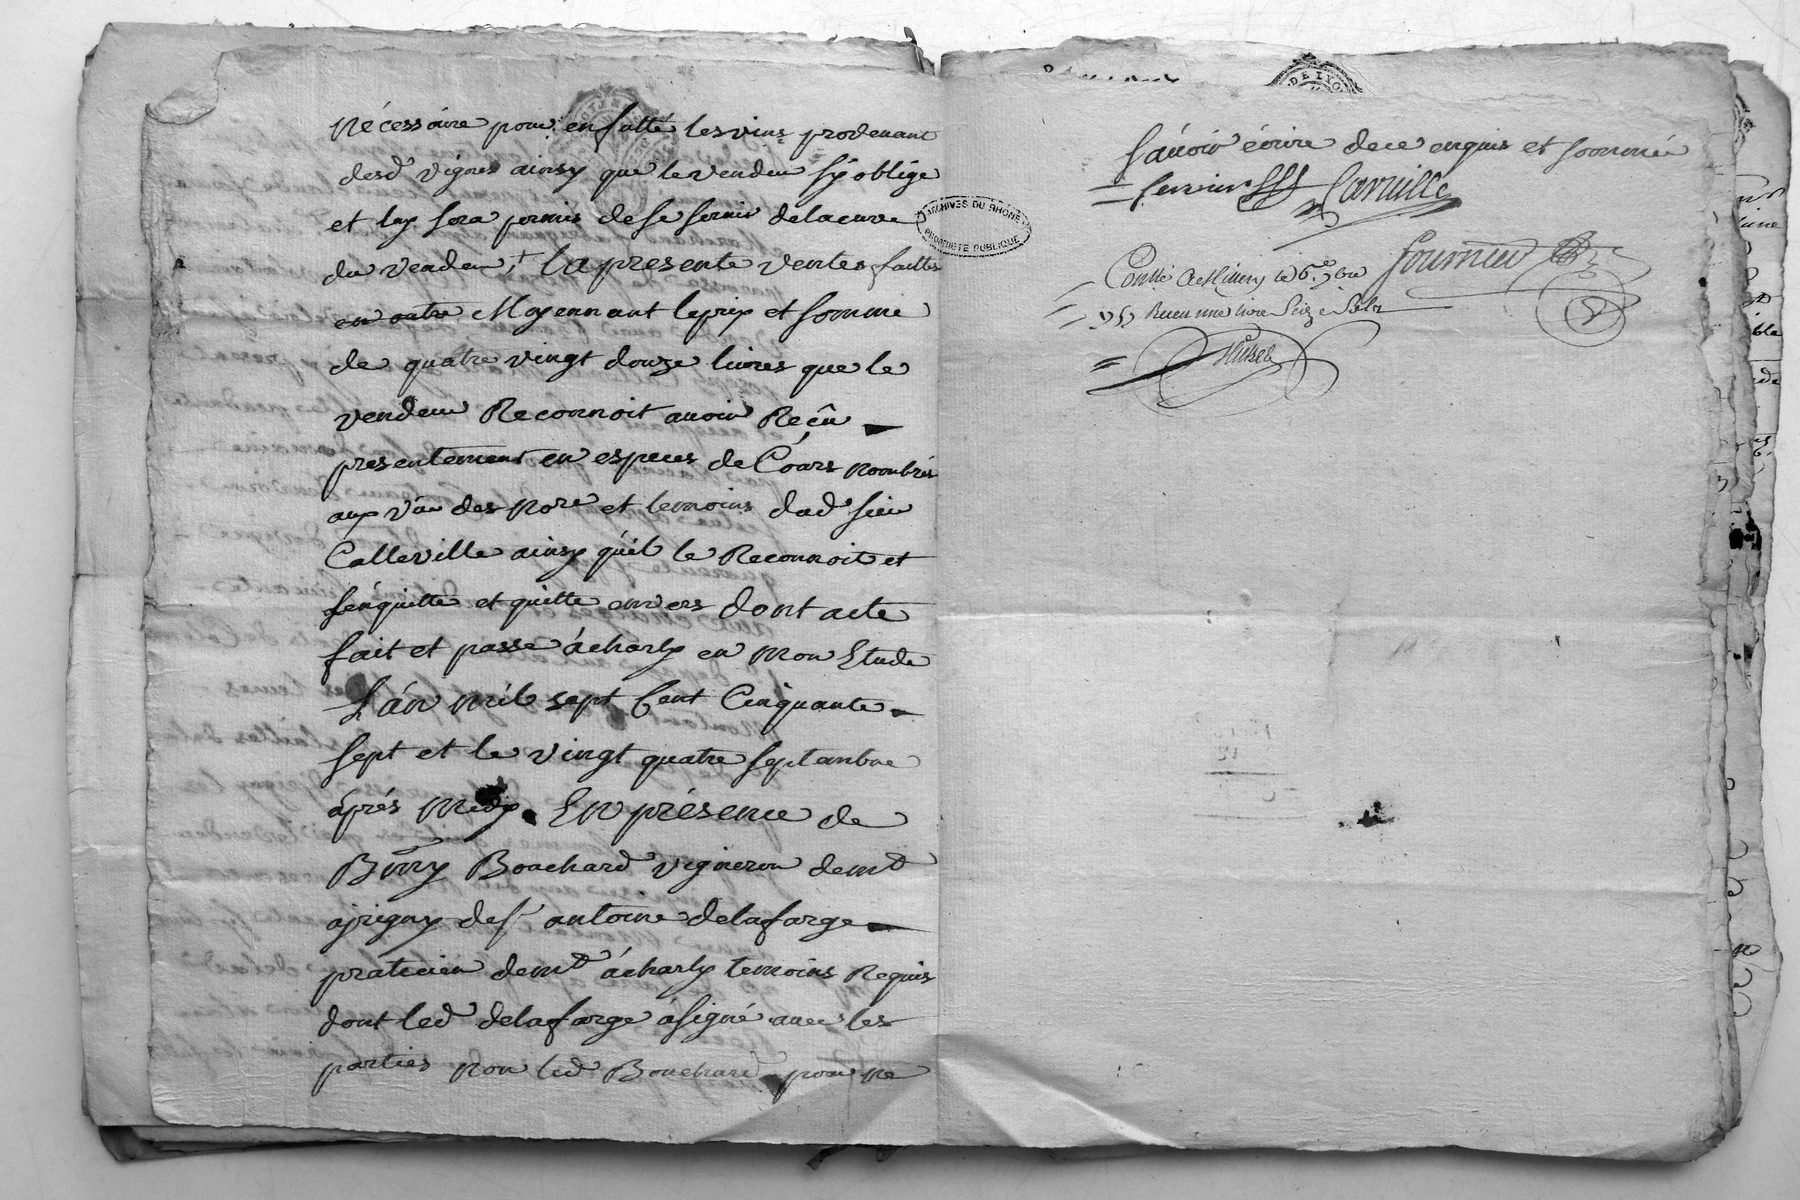 nécessaire pour enfutte les vins provenant
desd vignes ainsy que le vendeur sy oblige
et luy sera permis de se servir de la cuve
du vendeur, + la presente ventes faitte
en outre Moyennant le prix et somme
de quatre vingt douze livres que le
vendeur Reconnoit avoir Reçû
presentement en especes de Cours nombrés
aux vûe des nore et temoins dud sieur
Calleville ainsy quil le Reconnoit et
s'enquitte et quitte envers dont acte
fait et passé á charly en mon Etude
L'án mil sept Cent Cinquante
sept et le vingt quatre septembre
áprés midy. En présence de
Bouchard vigneron demt
a jrigny de sr antoine delafarge
praticien demt á charly temoins Requis
dont led delafarge á signé avec les
parties non led Bouchard pour ne
sávoir écrire de ce enquis et sommé
Fournier
ARCHIVES DU RHÔNE
PROPRIÉTÉ PUBLIQUE
DE LYO